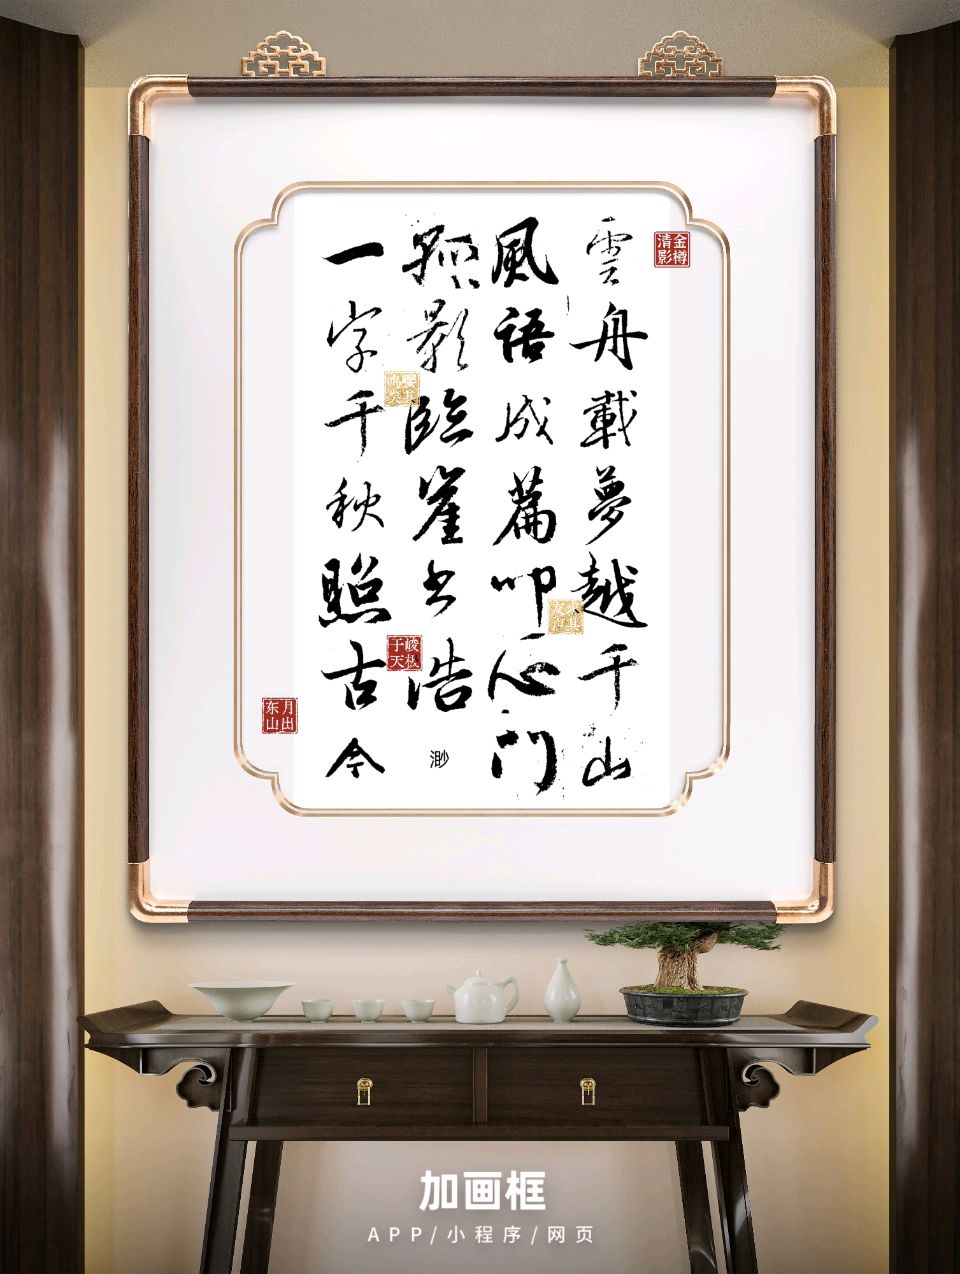 金樽清影
雲舟載夢越千山
風語成篇叩心門
孤影臨崖书浩渺
一字千秋照古今
峻极于天
月出东山
加画框
APP/小程序/网页